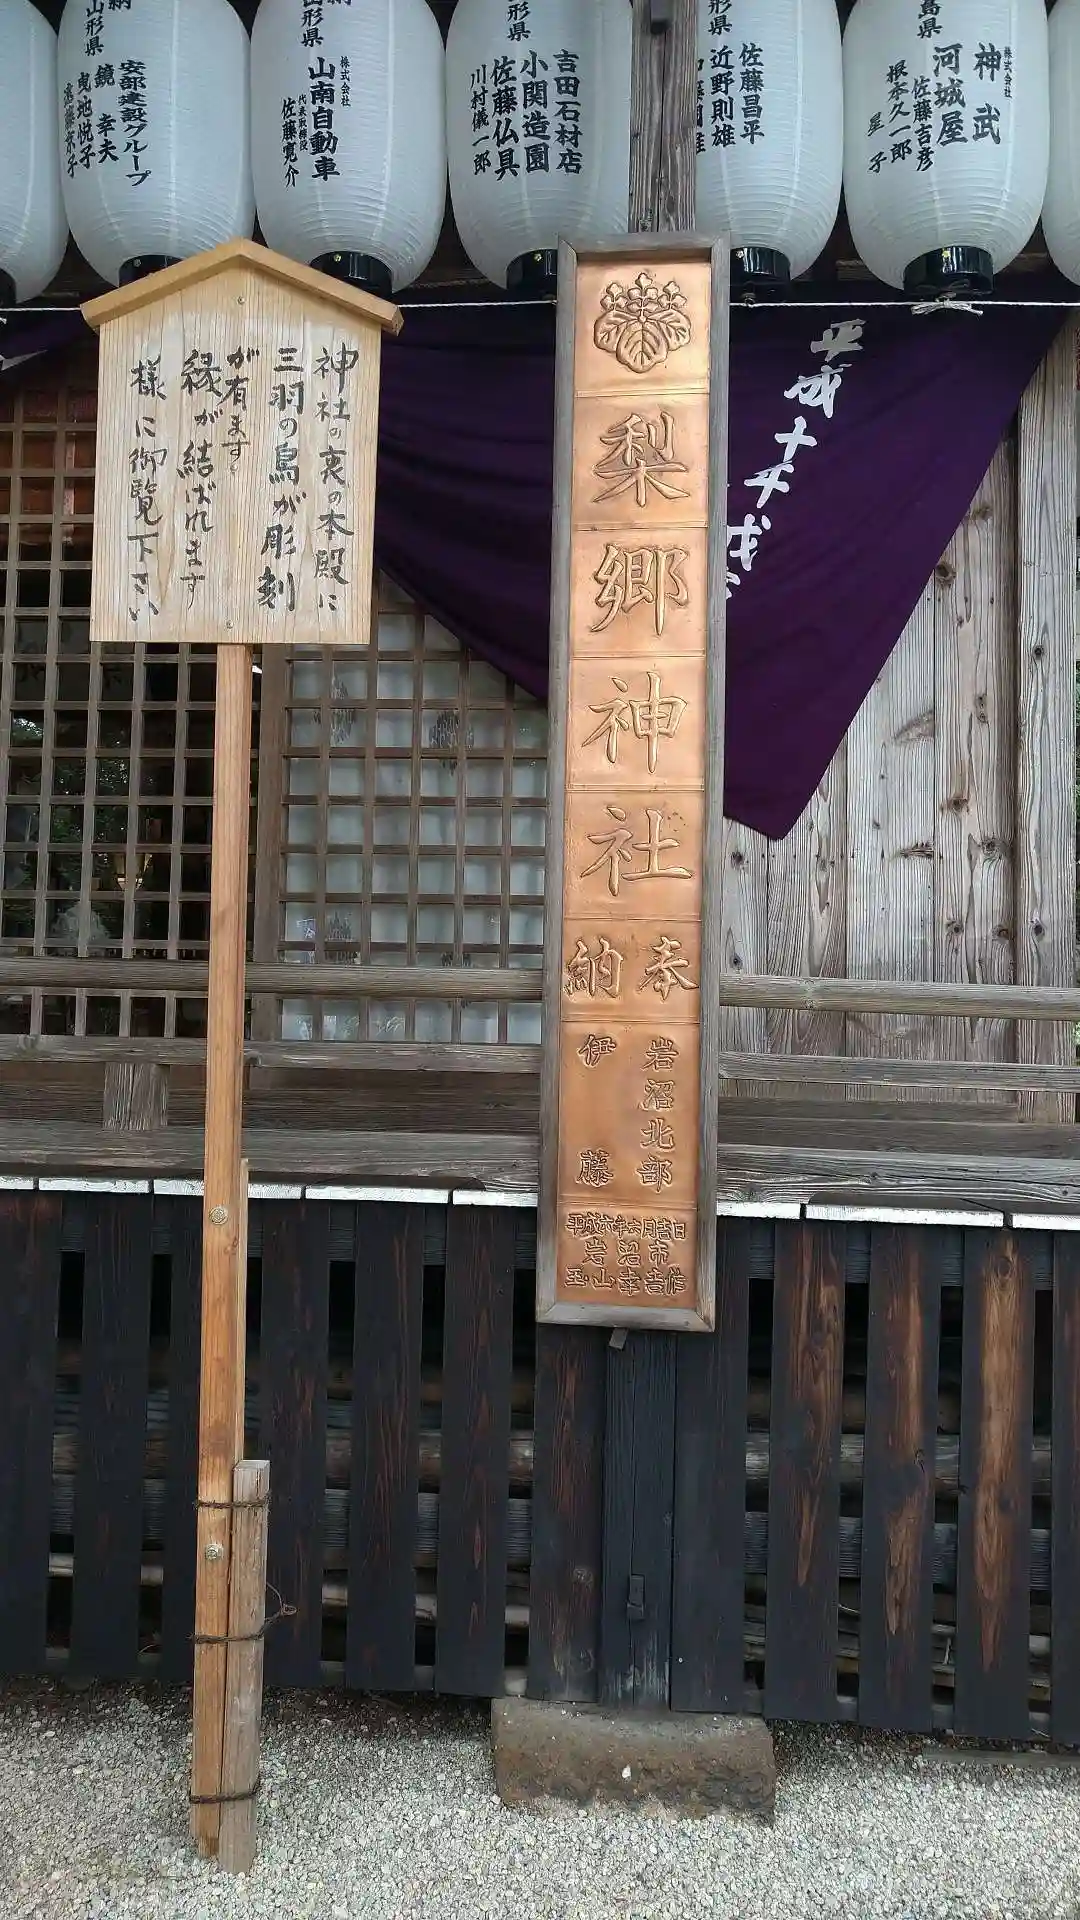 神社の裏の本殿に
三羽の鳥が彫刻
が有ます。
縁が結ばれます
様に御覧下さい
梨郷神社
奉納
岩沼北部
伊藤
平成六年六月吉日
岩沼市
玉山幸吉作
平成十年
神武
株式会社
河城屋
佐藤吉彦
根本久一郎
星子
佐藤昌平
近野則雄
形県
吉田石材店
小関造園
佐藤仏具
川村儀一郎
形県
株式会社
山南自動車
代表取締役
佐藤寛介
山形県
安部建設グループ
鏡幸夫
曳地悦子